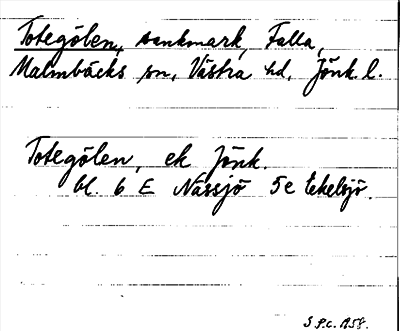 Totegölen, sankmark, Falla,
Malmbäcks sn, Västra hd, Jönk. l.
Totegölen, ek Jönk.
bl. 6 E Nässjö 5e Ekelsjö.
S P.c. 1958.